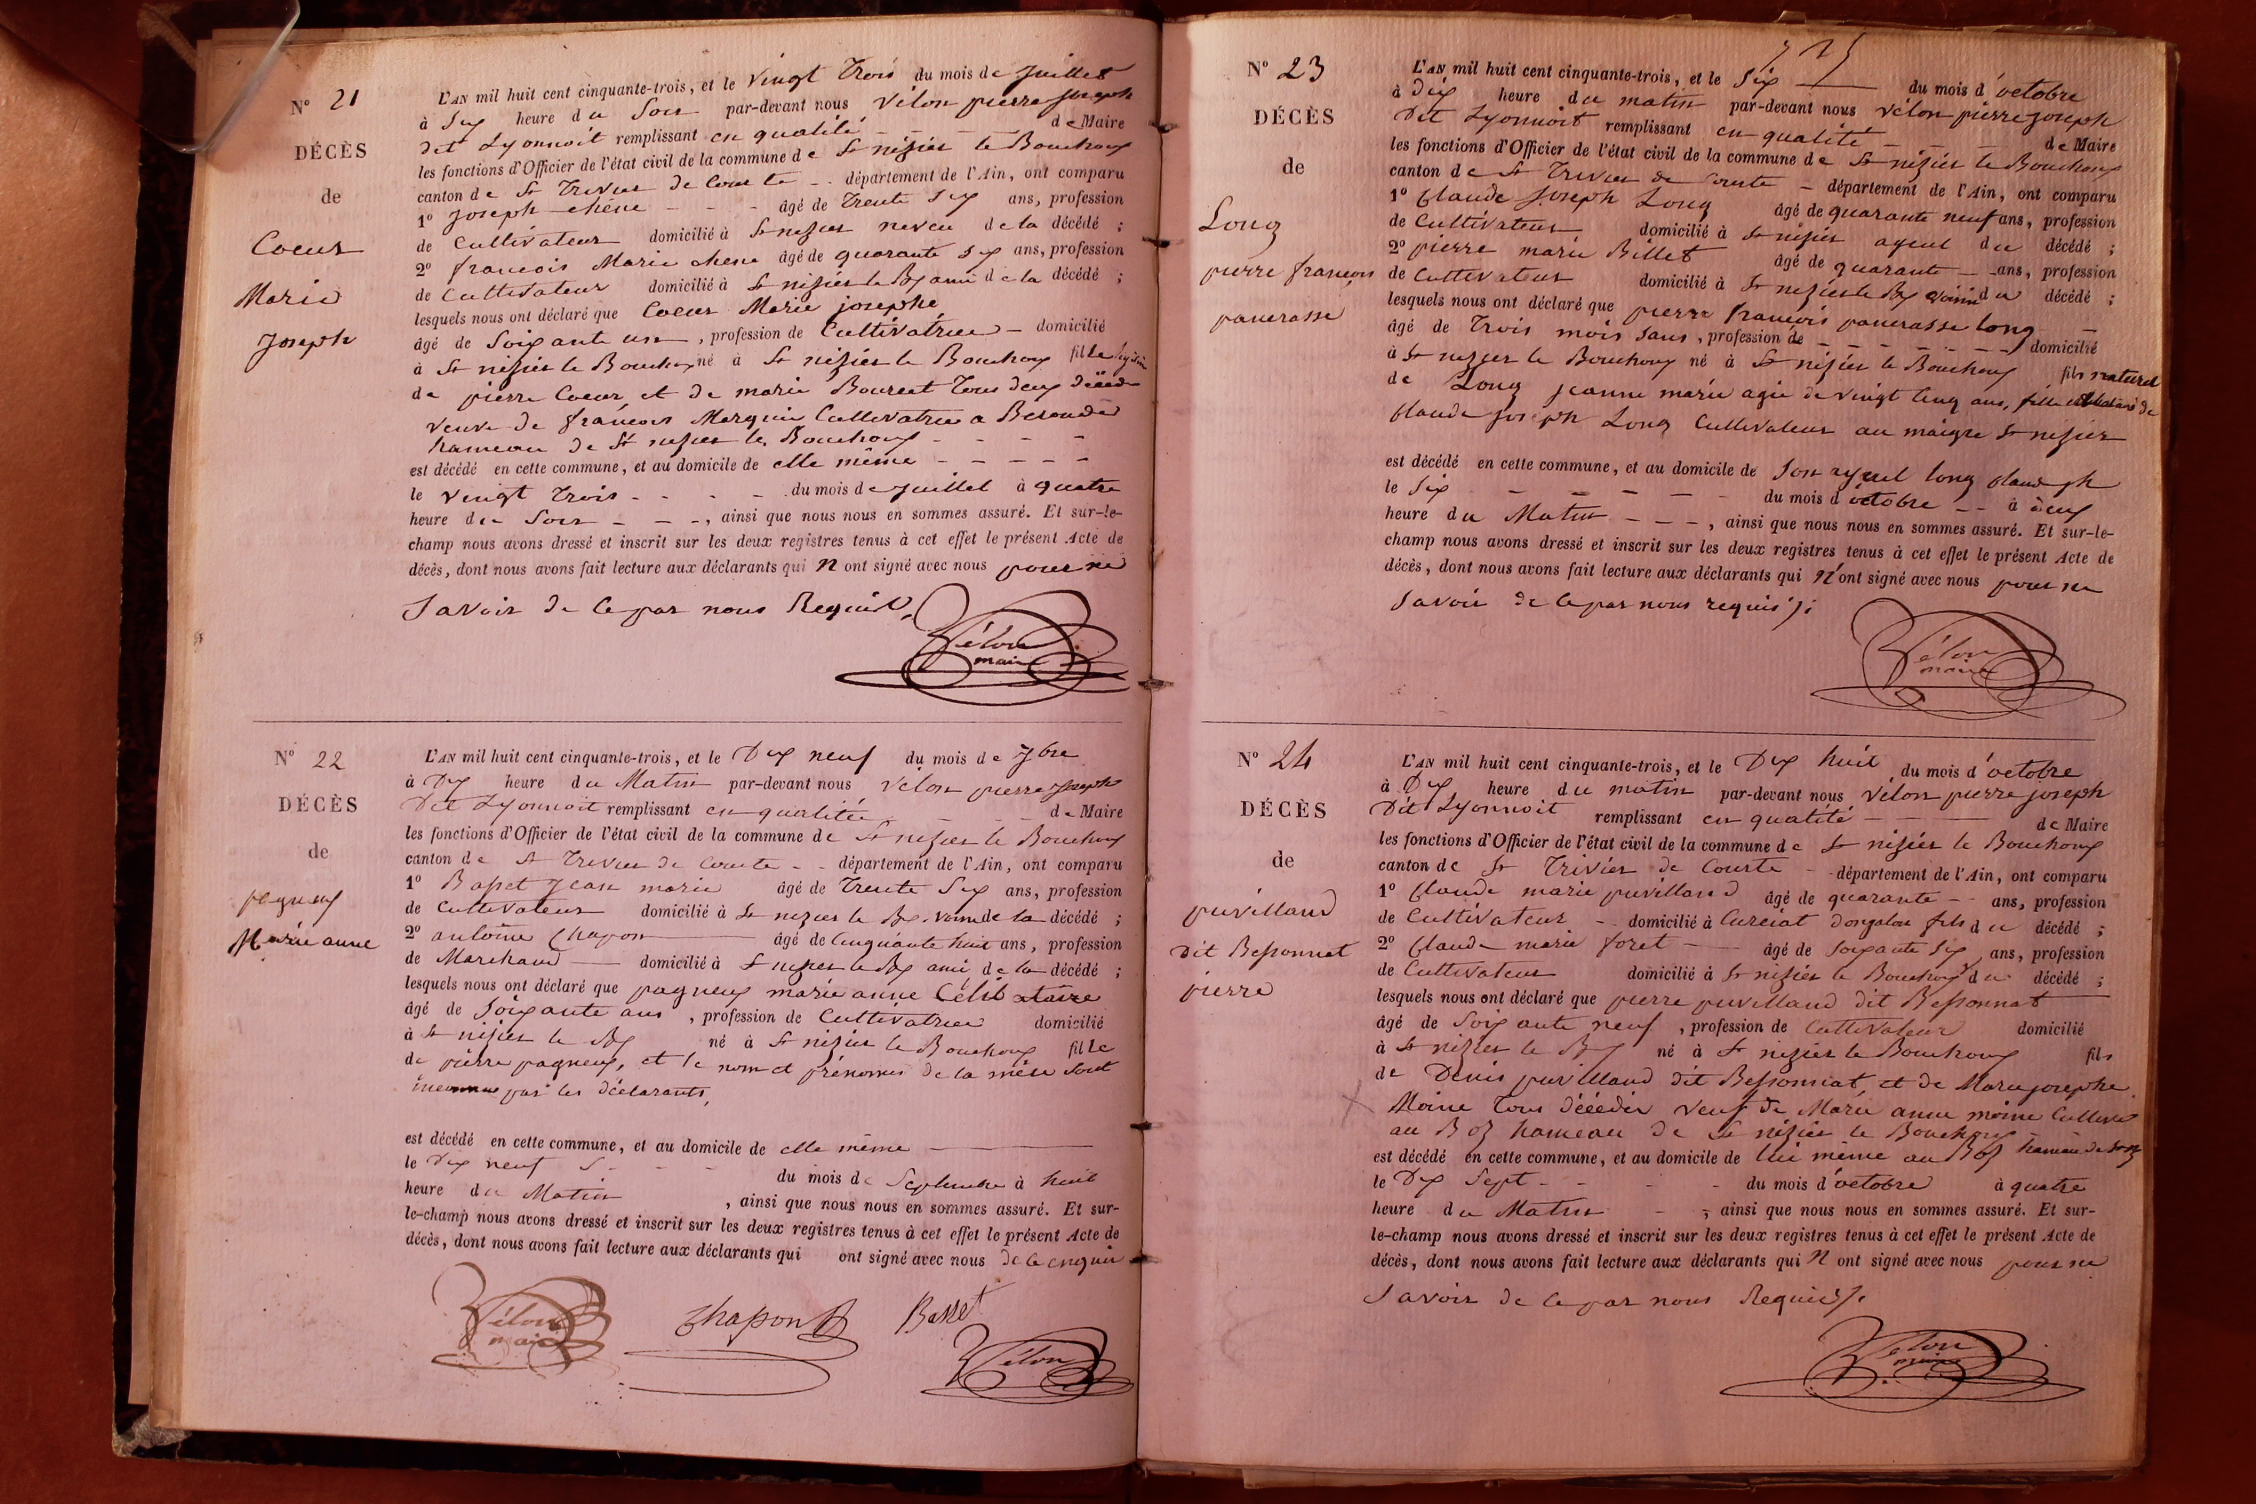 N° 21
DÉCÈS
de
Coeur
Marie
Joseph
L'AN mil huit cent cinquante-trois, et le vingt trois du mois de juillet
à Six heure du Soir par-devant nous Vélon pierre joseph
dit Lyonnoit remplissant en qualité _ _ _ _ de Maire
les fonctions d'Officier de l'état civil de la commune de St nizier le Bouchoux
canton de St Trivier de Courte _ . département de l'Ain, ont comparu
1° joseph chêne - - - âgé de Trente Six ans, profession
de Cultivateur domicilié à St nizier neveu de la décédé ;
2° francois Marie chene âgé de quarante Six ans, profession
de Cultivateur domicilié à St nizier le Bx ami de la décédé ;
lesquels nous ont déclaré que Coeur Marie josephe
âgé de Soixante un , profession de Cultivatrice - domicilié
à St nizier le Bouchoux né à St nizier le Bouchoux fille légitime
de pierre Coeur et de marie Bourcet Tous deux décédé
veuve de francois Marguin Cultivatrice a
hameau de St nizier le Bouchoux - - - -
est décédé en cette commune, et au domicile de elle même - - - - -
le vingt Trois - - - - . du mois de juillet à quatre
heure du Soir - - -, ainsi que nous nous en sommes assuré. Et sur-le-
champ nous avons dressé et inscrit sur les deux registres tenus à cet effet le présent Acte de
décès, dont nous avons fait lecture aux déclarants qui N ont signé avec nous pour ne
Savoir de ce par nous Requis,
Vélon
maire
N° 22
DÉCÈS
de
pagneux
Marie anne
L'AN mil huit cent cinquante-trois, et le Dix neuf du mois de 7bre
à Dix heure du Matin par-devant nous Vélon pierre joseph
Dit Lyonnoit remplissant en qualitée _ _ _ de Maire
les fonctions d'Officier de l'état civil de la commune de St nizier le Bouchoux
canton de St Trivier de Courte - - département de l'Ain, ont comparu
1° Basset jean marie âgé de Trente Six ans, profession
de Cultivateur domicilié à St nizier le Bx. voisin de la décédé ;
2° antoine Chapon âgé de Cinquante huit ans, profession
de Marchand domicilié à St nizier le Bx ami de la décédé ;
lesquels nous ont déclaré que pagneux marie anne Célibataire
âgé de Soixante ans , profession de Cultivatrice domicilié
à St nizier le Bx né à St nizier le Bouchoux fille
de pierre pagneux, et le nom et prénoms de la mère sont
inconnue par les déclarants,
est décédé en cette commune, et au domicile de elle même
le Dix neuf - - - du mois de Septembre à huit
heure du Matin , ainsi que nous nous en sommes assuré. Et sur-
le-champ nous avons dressé et inscrit sur les deux registres tenus à cet effet le présent Acte de
décès, dont nous avons fait lecture aux déclarants qui ont signé avec nous de ce enquis
Vélon
maire
Chapon
Basset
Vélon
N° 23
DÉCÈS
de
Long
pierre francois
pancrasse
L'AN mil huit cent cinquante-trois, et le Six du mois d'octobre
à dix heure du matin par-devant nous Vélon pierre joseph
Dit Lyonnoit remplissant en qualité _ _ _ de Maire
les fonctions d'Officier de l'état civil de la commune de St nizier le Bouchoux
canton de St Trivier de Courte - département de l'Ain, ont comparu
1° Claude Joseph Long âgé de quarante neuf ans, profession
de Cultivateur domicilié à St nizier ayeul du décédé ;
2° pierre marie Billet âgé de quarante - - ans, profession
de Cultivateur domicilié à St nizier le Bx voisin du décédé ;
lesquels nous ont déclaré que pierre francois pancrasse Long
âgé de Trois mois sans , profession de - - - - - domicilié
à St nizier le Bouchoux né à St nizier le Bouchoux fils naturel
de Long jeanne marie agée de vingt Cinq ans, fille de
Claude joseph Long Cultivateur au maigre St nizier
est décédé en cette commune, et au domicile de Son ayeul long
le Six - - - - - - du mois d'octobre - - à deux
heure du Matin - - - , ainsi que nous nous en sommes assuré. Et sur-le-
champ nous avons dressé et inscrit sur les deux registres tenus à cet effet le présent Acte de
décès, dont nous avons fait lecture aux déclarants qui N'ont signé avec nous pour ne
Savoir de ce par nous requis
Vélon
maire
N° 24
DÉCÈS
de
puvilland
dit Bessonnat
pierre
L'AN mil huit cent cinquante-trois, et le Dix huit du mois d'octobre
à Dix heure du matin par-devant nous Vélon pierre joseph
Dit Lyonnoit remplissant en qualité - - de Maire
les fonctions d'Officier de l'état civil de la commune de St nizier le Bouchoux
canton de St Trivier de Courte - département de l'Ain, ont comparu
1° Claude marie puvilland âgé de quarante - - ans, profession
de Cultivateur - - domicilié à Curciat dongalon fils du décédé ;
2° Claude marie foret - âgé de Soixante Six ans, profession
de Cultivateur domicilié à St nizier le Bouchoux du décédé ;
lesquels nous ont déclaré que pierre puvilland dit Bessonnat
âgé de Soixante neuf , profession de Cultivateur domicilié
à St nizier le Bx né à St nizier le Bouchoux fils
de Denis puvilland dit Bessonnat, et de Marie josephe
Moine Tous décédés veuf de Marie anne moine Cultiva
au Boz hameau de St nizier le Bouchoux
est décédé en cette commune, et au domicile de lui même au Boz hameau de
le Dix Sept - - - - du mois d'octobre à quatre
heure du Matin - , ainsi que nous nous en sommes assuré. Et sur-
le-champ nous avons dressé et inscrit sur les deux registres tenus à cet effet le présent Acte de
décès, dont nous avons fait lecture aux déclarants qui N ont signé avec nous pour ne
Savoir de ce par nous Requis
Vélon
maire